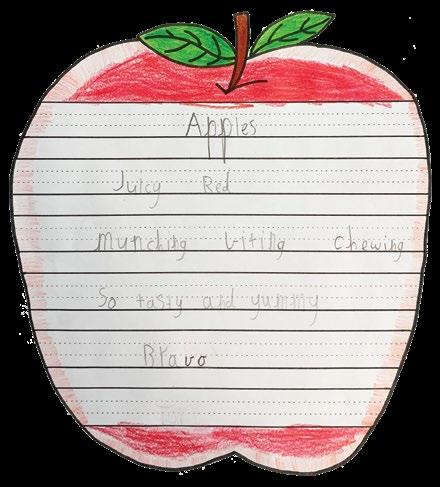 Apples
Juicy Red
Munching biting chewing
So tasty and yummy
Bravo